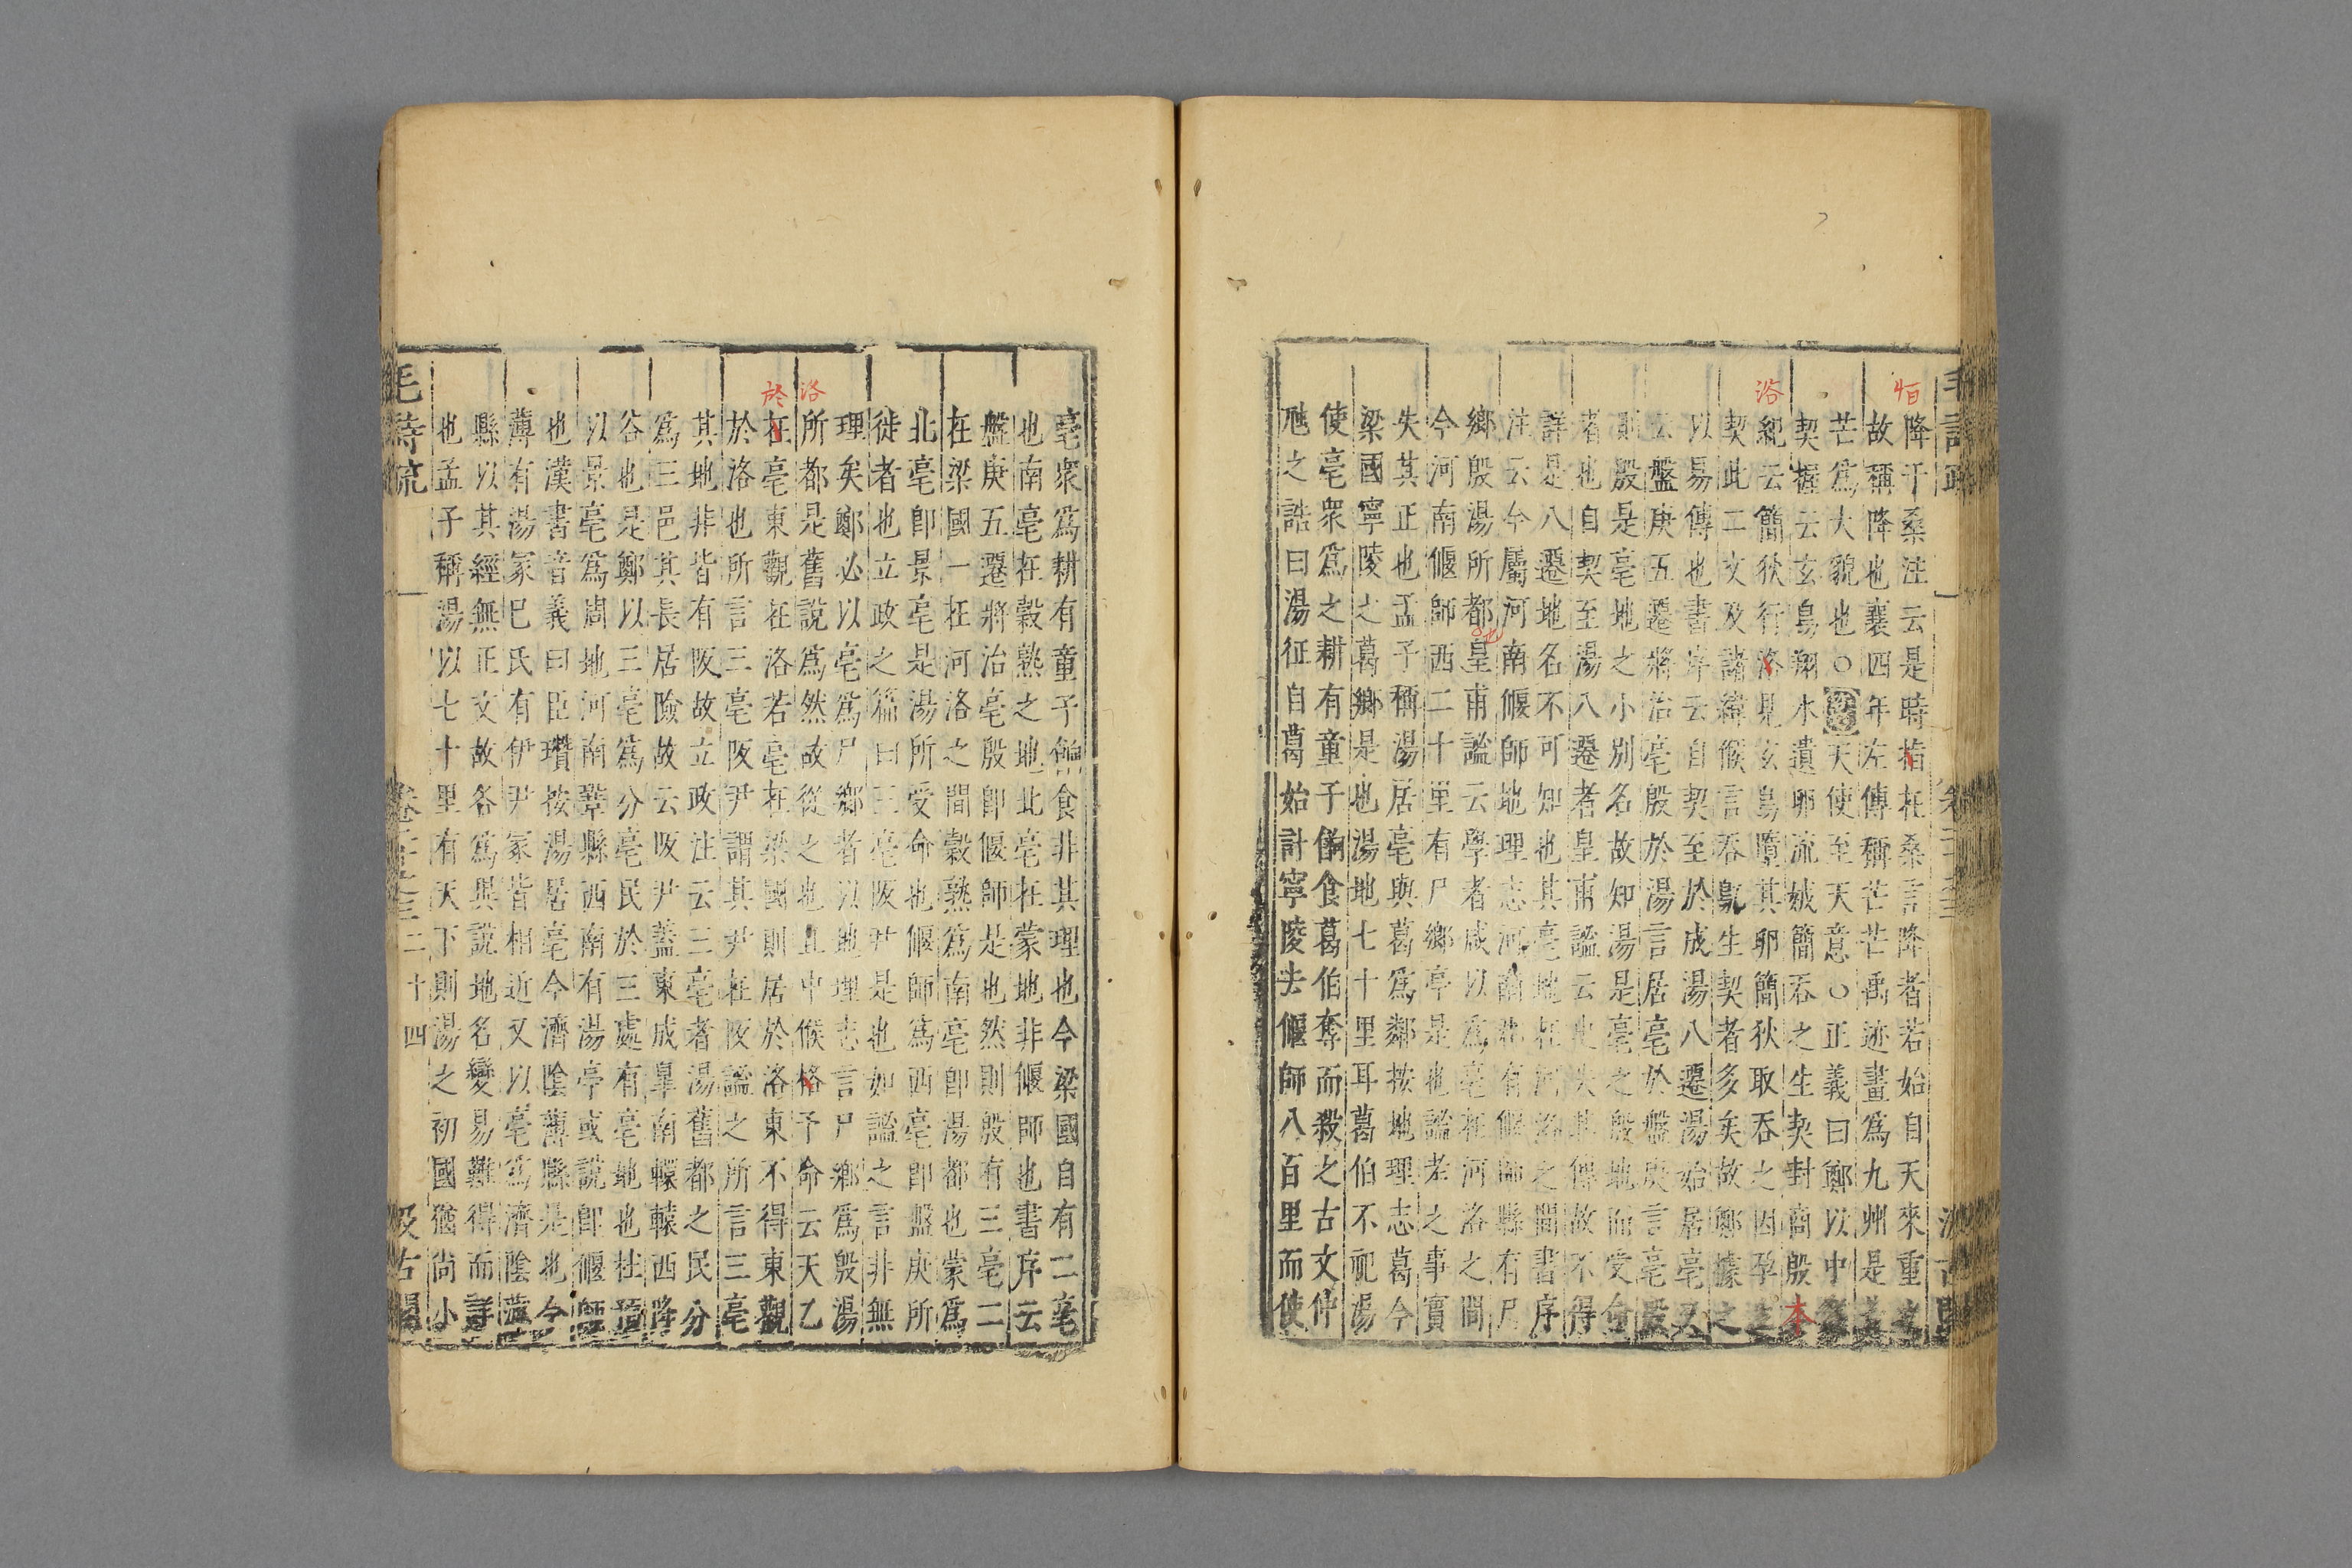 降于桑注云是時指在桑言降者若始自天來重之
故稱降也襄四年左傳稱芒芒禹迹畫爲九州是芒
芒爲大貌也○天使至天意○正義曰鄭以中
契握云玄鳥翔水遺卵流娀簡吞之生契封商殷本
紀云簡狄行洛見玄鳥墮其卵簡狄取吞之因孕生
契此二文及諸緯候言吞鳦生契者多矣故鄭據之
以易傳也書序云自契至於成湯八遷湯始居亳又
云盤庚五遷將治亳殷於湯言居亳於盤庚言亳殷
則殷是亳地之小別名故知湯是亳之殷地而受命
者也自契至湯八遷者皇甫謐云史失其傳故不得
詳是八遷地名不可知也其亳地在河洛之間書序
注云今屬河南偃師地理志河南郡有偃師縣有尸
鄉殷湯所都皇甫謐云學者咸以爲亳在河洛之間
今河南偃師西二十里有尸鄉亭是也謐考之事實
失其正也孟子稱湯居亳與葛爲鄰按地理志葛今
梁國寧陵之葛鄉是也湯地七十里耳葛伯不祀湯
使亳衆爲之耕有童子餉食葛伯奪而殺之古文仲
虺之誥曰湯征自葛始計寧陵去偃師八百里而使
恒
洛
地
毛詩疏
亳衆爲耕有童子餉食非其理也今梁國自有二亳
也南亳在穀熟之地北亳在蒙地非偃師也書序云
盤庚五遷將治亳殷卽偃師是也然則殷有三亳二
在梁國一在河洛之間穀熟爲南亳卽湯都也蒙爲
北亳卽景亳是湯所受命也偃師爲西亳卽盤庚所
徙者也立政之篇曰三亳阪尹是也如謐之言非無
理矣鄭必以亳爲尸鄉者以地理志言尸鄉爲殷湯
所都是舊說爲然故從之也且中候格予命云天乙
在亳東觀在洛若亳在梁國則居於洛東不得東觀
於洛也所言三亳阪尹謂其尹在阪謐之所言三亳
其地非皆有阪故立政注云三亳者湯舊都之民分
爲三邑其長居險故云阪尹蓋東成皐南轘轅西降
谷也是鄭以三亳爲分亳民於三處有亳地也杜預
以景亳爲周地河南鞏縣西南有湯亭或說卽偃師
也漢書音義曰臣瓚按湯居亳今濟陰薄縣是也今
薄有湯冢巳氏有伊尹冢皆相近又以亳爲濟陰薄
縣以其經無正文故各爲異說地名變易難得而詳
也孟子稱湯以七十里有天下則湯之初國猶尚小
洛
於
毛詩疏 卷二十之三 二十四 汲古閣